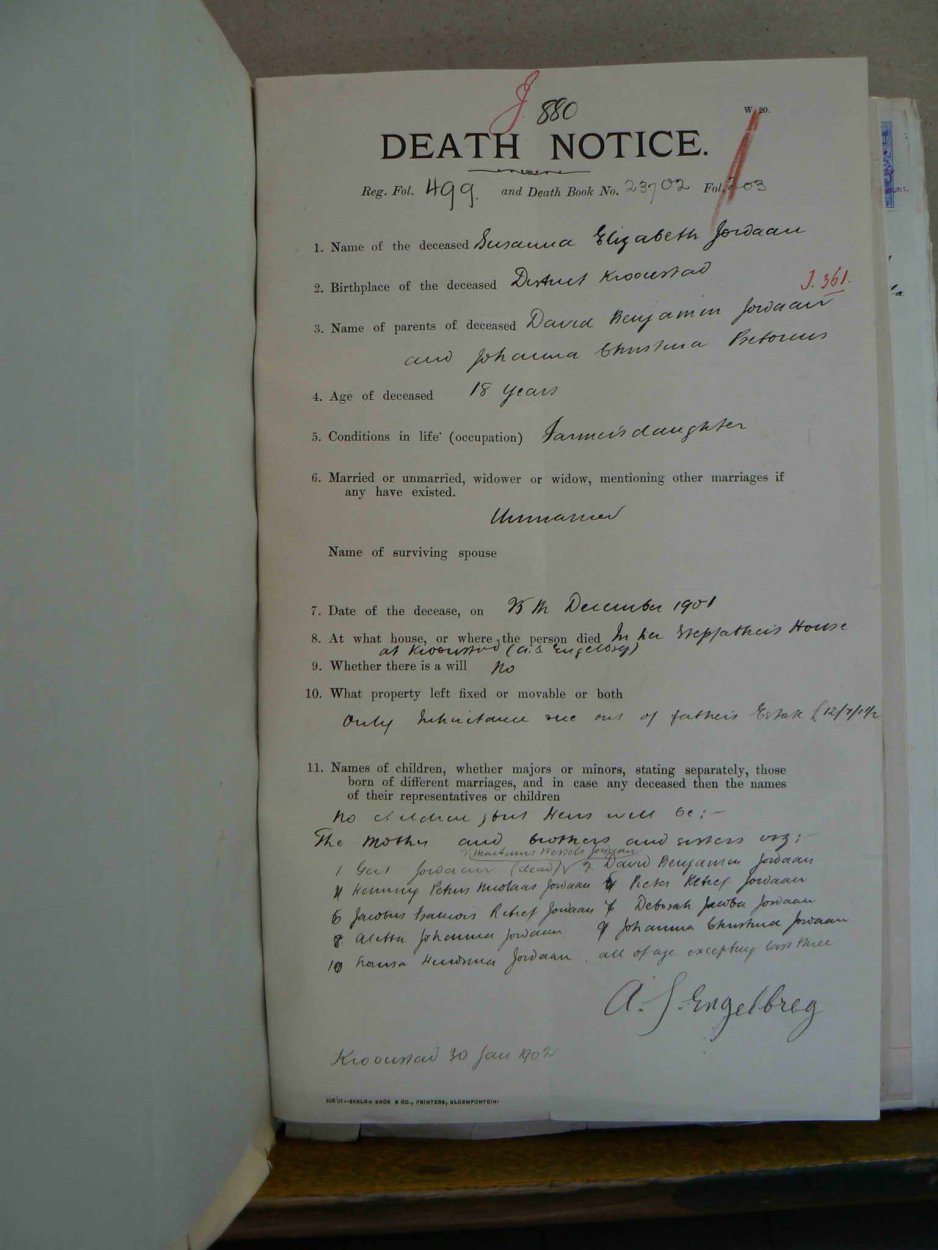 J 880
W. 20.
DEATH NOTICE.
Reg. Fol. 499. and Death Book No. 23702 Fol. 203
1. Name of the deceased Susanna Elizabeth Jordaan
2. Birthplace of the deceased District Kroonstad
J. 361.
3. Name of parents of deceased David Benjamin Jordaan
and Johanna Christina Pretorius
4. Age of deceased 18 years
5. Conditions in life (occupation) Farmer's daughter
6. Married or unmarried, widower or widow, mentioning other marriages if
any have existed.
Unmarried
Name of surviving spouse
7. Date of the decease, on December 1901
8. At what house, or where the person died In her Stepfather's House
at Kroonstad (A.S. Engelbreg)
9. Whether there is a will No
10. What property left fixed or movable or both
Only Inheritance due out of father's Estate
11. Names of children, whether majors or minors, stating separately, those
born of different marriages, and in case any deceased then the names
of their representatives or children
No children, but Heirs will be:-
The Mother and brothers and sisters viz:-
2 Marthinus Wessels Jordaan
1 Gert Jordaan (dead) 3 David Benjamin Jordaan
4 Henning Petrus Nicolaas Jordaan 5 Pieter Retief Jordaan
6 Jacobus Francois Retief Jordaan 7 Deborah Jacoba Jordaan
8 Aletta Johanna Jordaan 9 Johanna Christina Jordaan
10 Hendrina Jordaan all of age excepting last three
A. S. Engelbreg
Kroonstad 30 Jan 1902
BARLOW BROS & CO., PRINTERS, BLOEMFONTEIN.